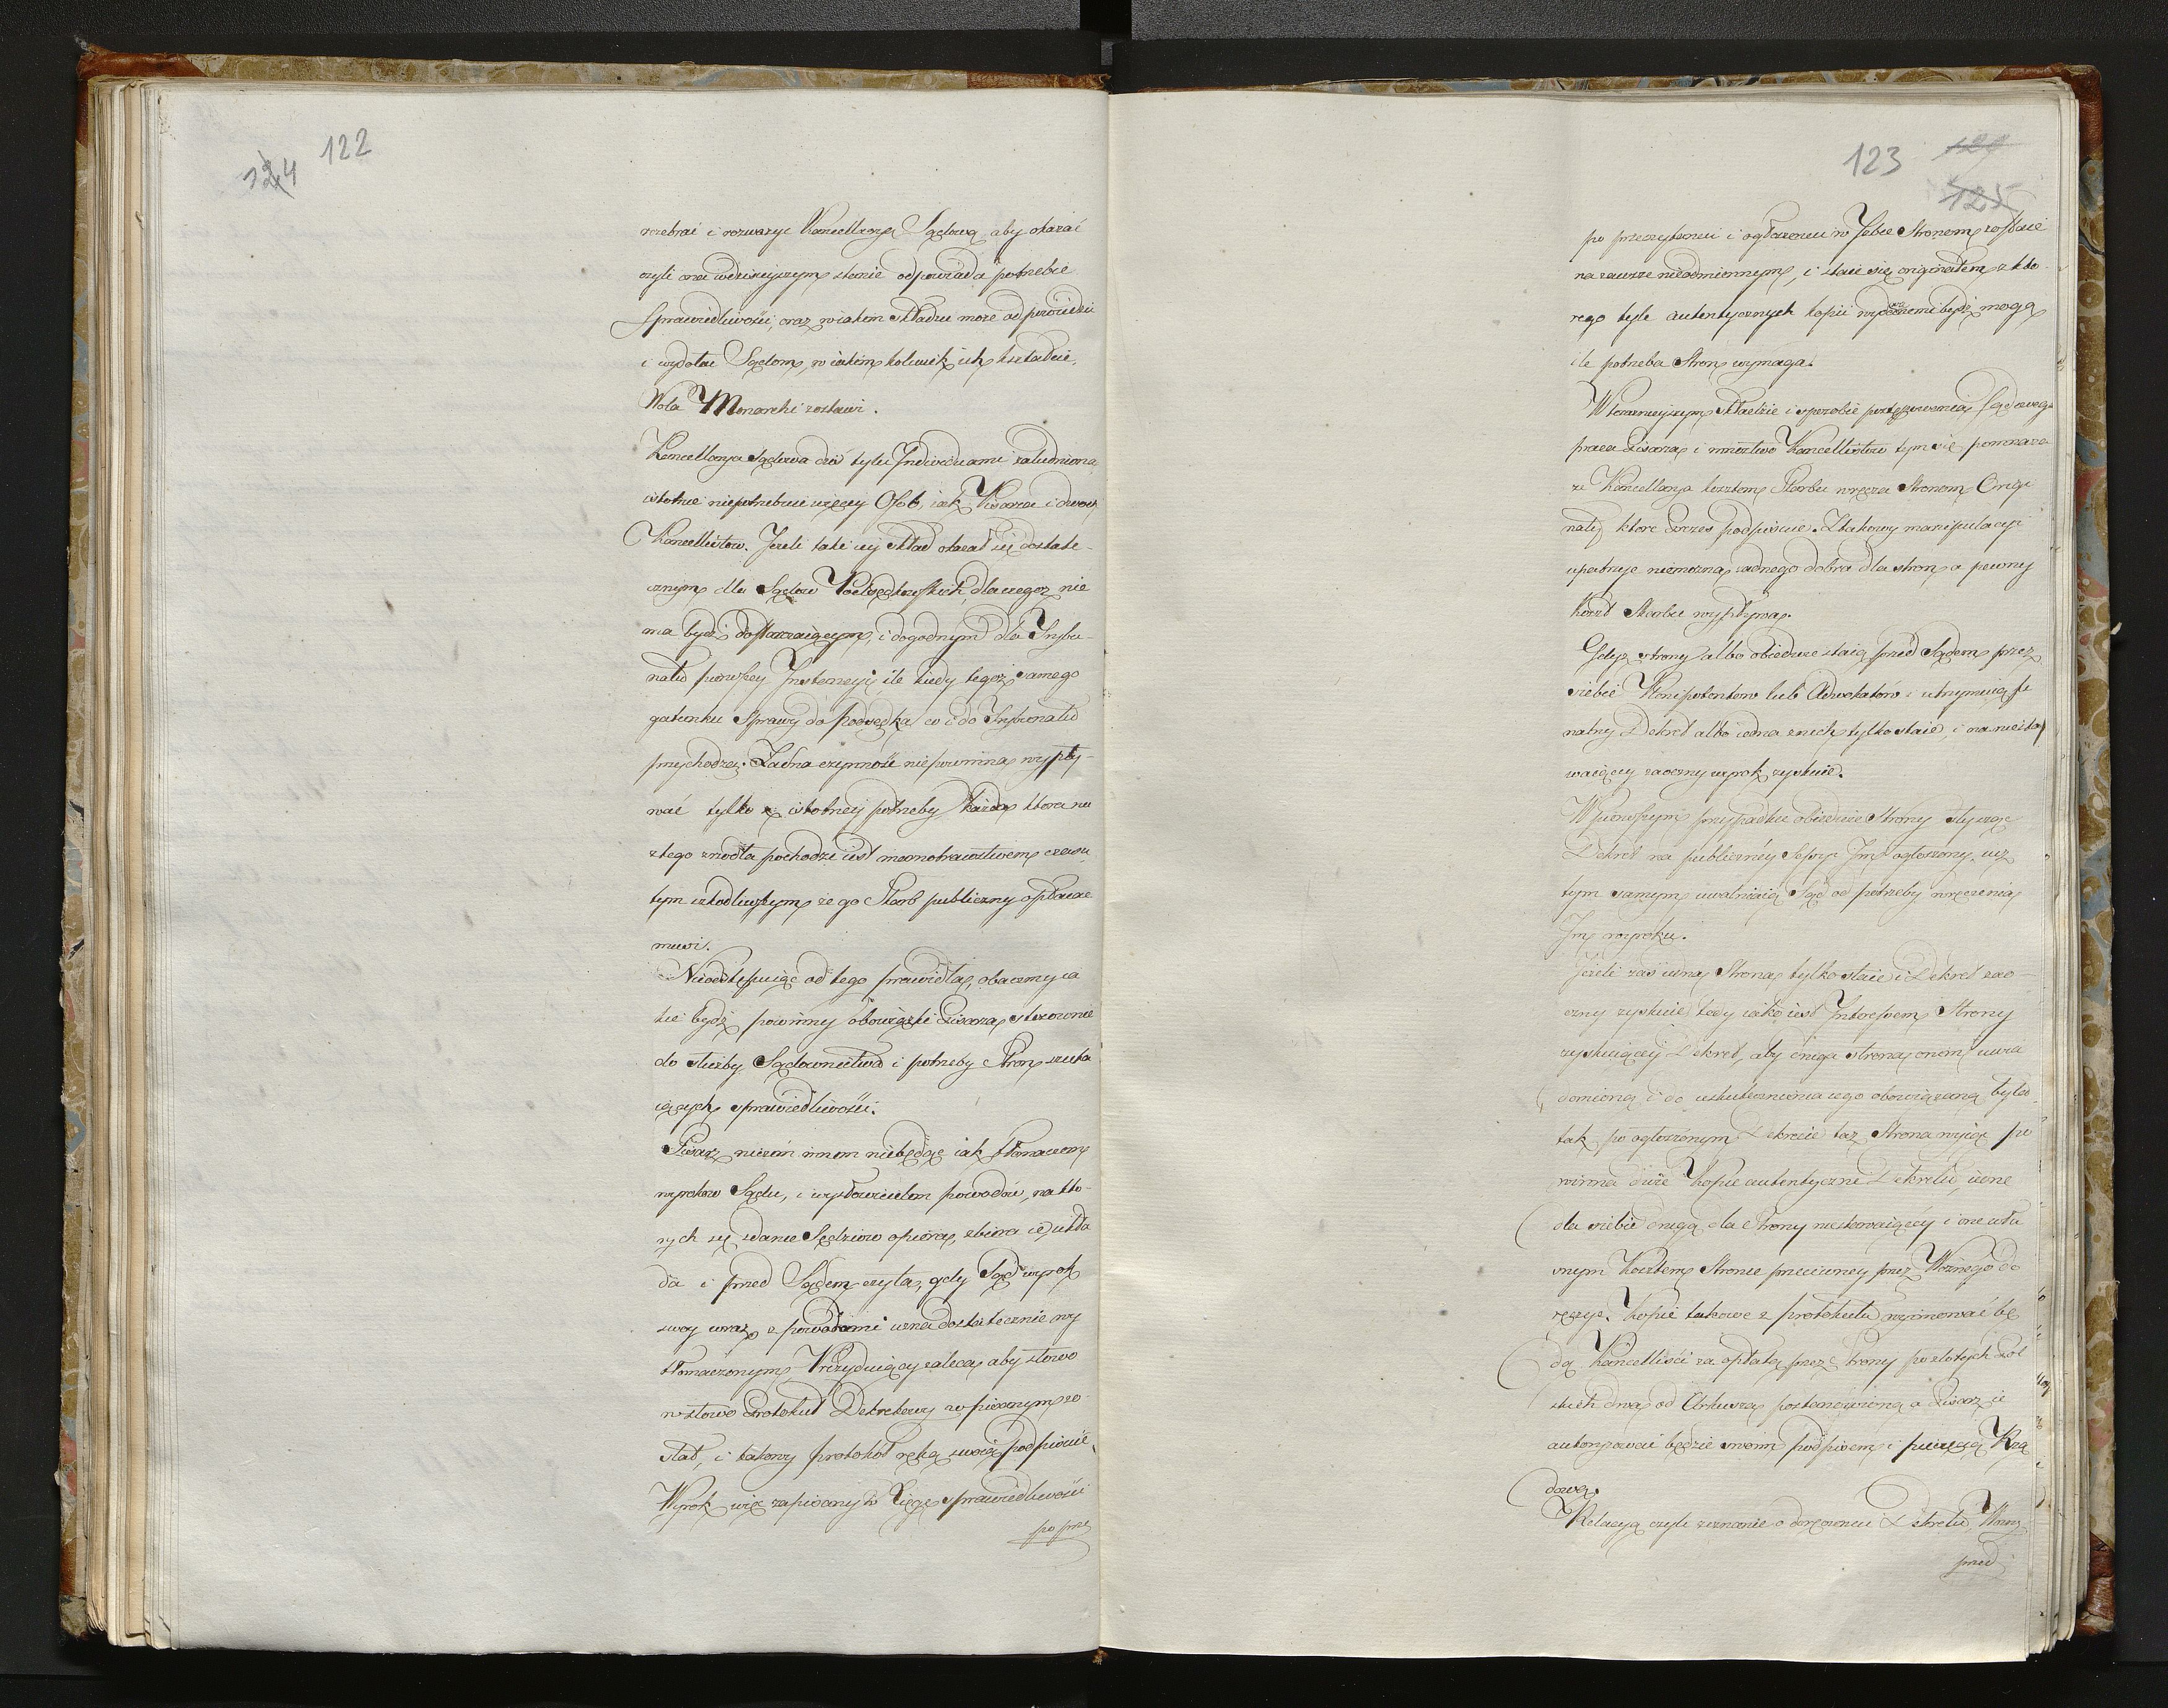 124 122
rozebrać i rozważyć Kancellaryą Sądową, aby okazać
czyli ona wdzisieyszym stanie odpowiada potrzebie
Sprawiedliwości, oraz wiakim składzie może odpowiedzieć
i wydołać Sądom, w iakim kolwiek ich kształcie,
Wola Monarchi zostawi.
Kancellarya Sądowa dziś tylu Individuami zaludniona
istotnie niepotrzebuie więcey Osób, iak Pisarza i dwóch
Kancellistow. Jeżeli taki iey skład okazał się dostate-
cznym dla Sądow Podsędkowskich, dlaczegoż nie
ma bydź dostarczaiącym, i dogodnym dla Trybu-
nału pierwszey Instancyi, ile kiedy tegoż samego
gatunku Sprawy do Podsędka co i do Trybunału
przychodzą. Żadna czynność niepowinna wypły-
wać tylko z istotney potrzeby, każda ktora nie
ztego zrzódła pochodzi iest marnotrawstwem czasu
tym szkodliwszym że go Skarb publiczny opłacać
musi.
Nieodstępuiąc od tego prawidła, obaczmy ia
kie bydź powinny obowiązki Pisarza, stosownie
do służby Sądownictwa i potrzeby Stron szuka
iących sprawiedliwości.
Pisarz niczém innem niebędąc iak tłomaczem
wyrokow Sądu, i wysłowicielem powodów, na któ-
rych się zdanie Sędziow opiera, zbiera ie, ukła
da i przed Sądem czyta, gdy Sąd wyrok
swoy wraz z powodami uzna dostatecznie wy
tłomaczonym, Prezyduiący zaleca, aby słowo
w słowo Protokuł Dekretowy wpisanym zo-
stał, i takowy protokół ręką swoią podpisuie.
Wyrok więc zapisany w Xięgę sprawiedliwości
po prze
123 125
po przeczytaniu i ogłoszeniu w Izbie Stronom zostaie
na zawsze nieodmiennym, i staie się originałem z któ-
rego tyle autentycznych kopii wydanemi bydź mogą
ile potrzeba Stron wymaga.
W teraznieyszym składzie i sposobie postępowania Sądowego
praca Pisarza i mnóztwo Kancellistów tym się pomnaża
że Kancellarya kosztem Skarbu wręcza Stronom Origi
nały, które Prezes podpisuie. Z takowey manipulacyi
upatruje niemożna żadnego dobra dla stron, a pewny
koszt Skarbu wypływa.
Gdyż strony albo obiedwie staią przed Sądem przez
siebie Plenipotentow lub Adwokatów i otrzymuią fi
nalny Dekret albo iedna znich tylko staie, i na niesta
waiącey zaoczny wyrok zyskuie.
W pierwszym przypadku obiedwie Strony słysząc
Dekret na publiczney Sessyi Im ogłoszony, iuż
tym samym uwalniaią Sąd od potrzeby wręczenia
Im wyroku.
Jeżeli zaś iedna Strona tylko staie i Dekret zao-
czny zyskuie, tedy iako iest Interessem Strony
zyskuiącey Dekret, aby druga strona onim uwia
domioną i do uskutecznienia iego obowiązaną była.
tak po ogłoszonym Dekrecie taż Strona wyiąć po
winna dwie Kopie autentyczne Dekretu, iednę
dla siebie drugą dla Strony niestawaiącey i one wła
snym kosztem Stronie przeciwney przez Woźnego do
ręczyć. Kopie takowe z protokułu wyimować bę
dą Kancelliści za opłatą przez Strony po złotych Pol
skich dwa od Arkusza postanowioną a Pisarz ie
autoryzować będzie swoim podpisem i pieczęcią Rzą
dową.
Relacyą czyli zeznanie o doręczeniu Dekretu, Woźny
przed